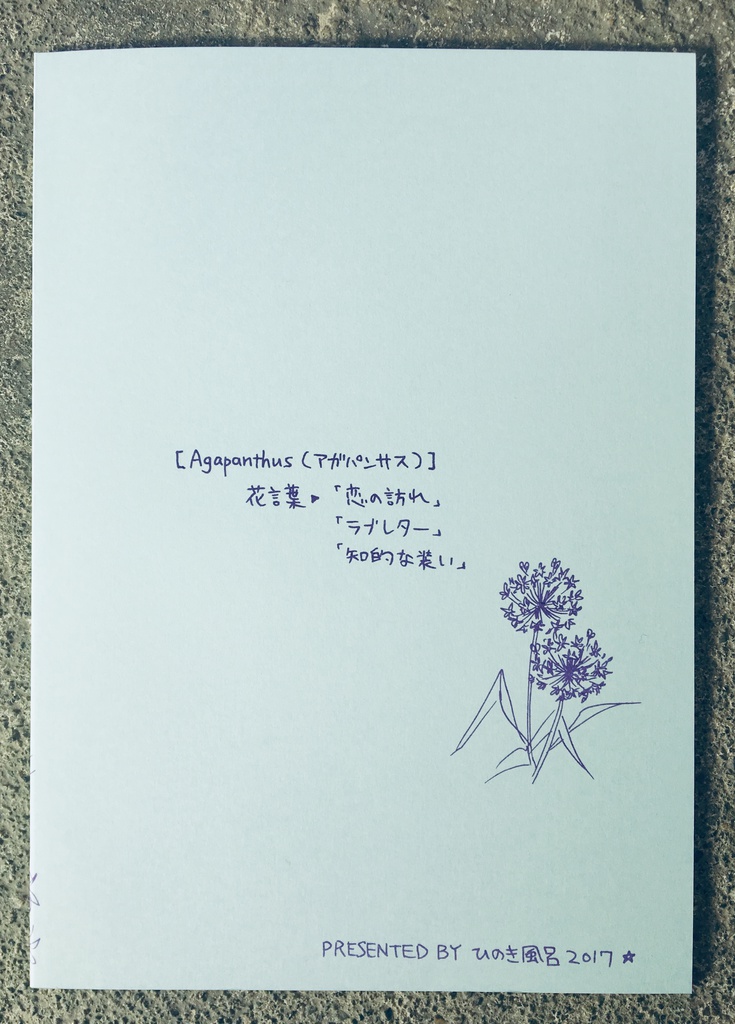 [Agapanthus (アガパンサス)]
花言葉▸「恋の訪れ」
「ラブレター」
「知的な装い」
PRESENTED BY ひのき風呂 2017 ★